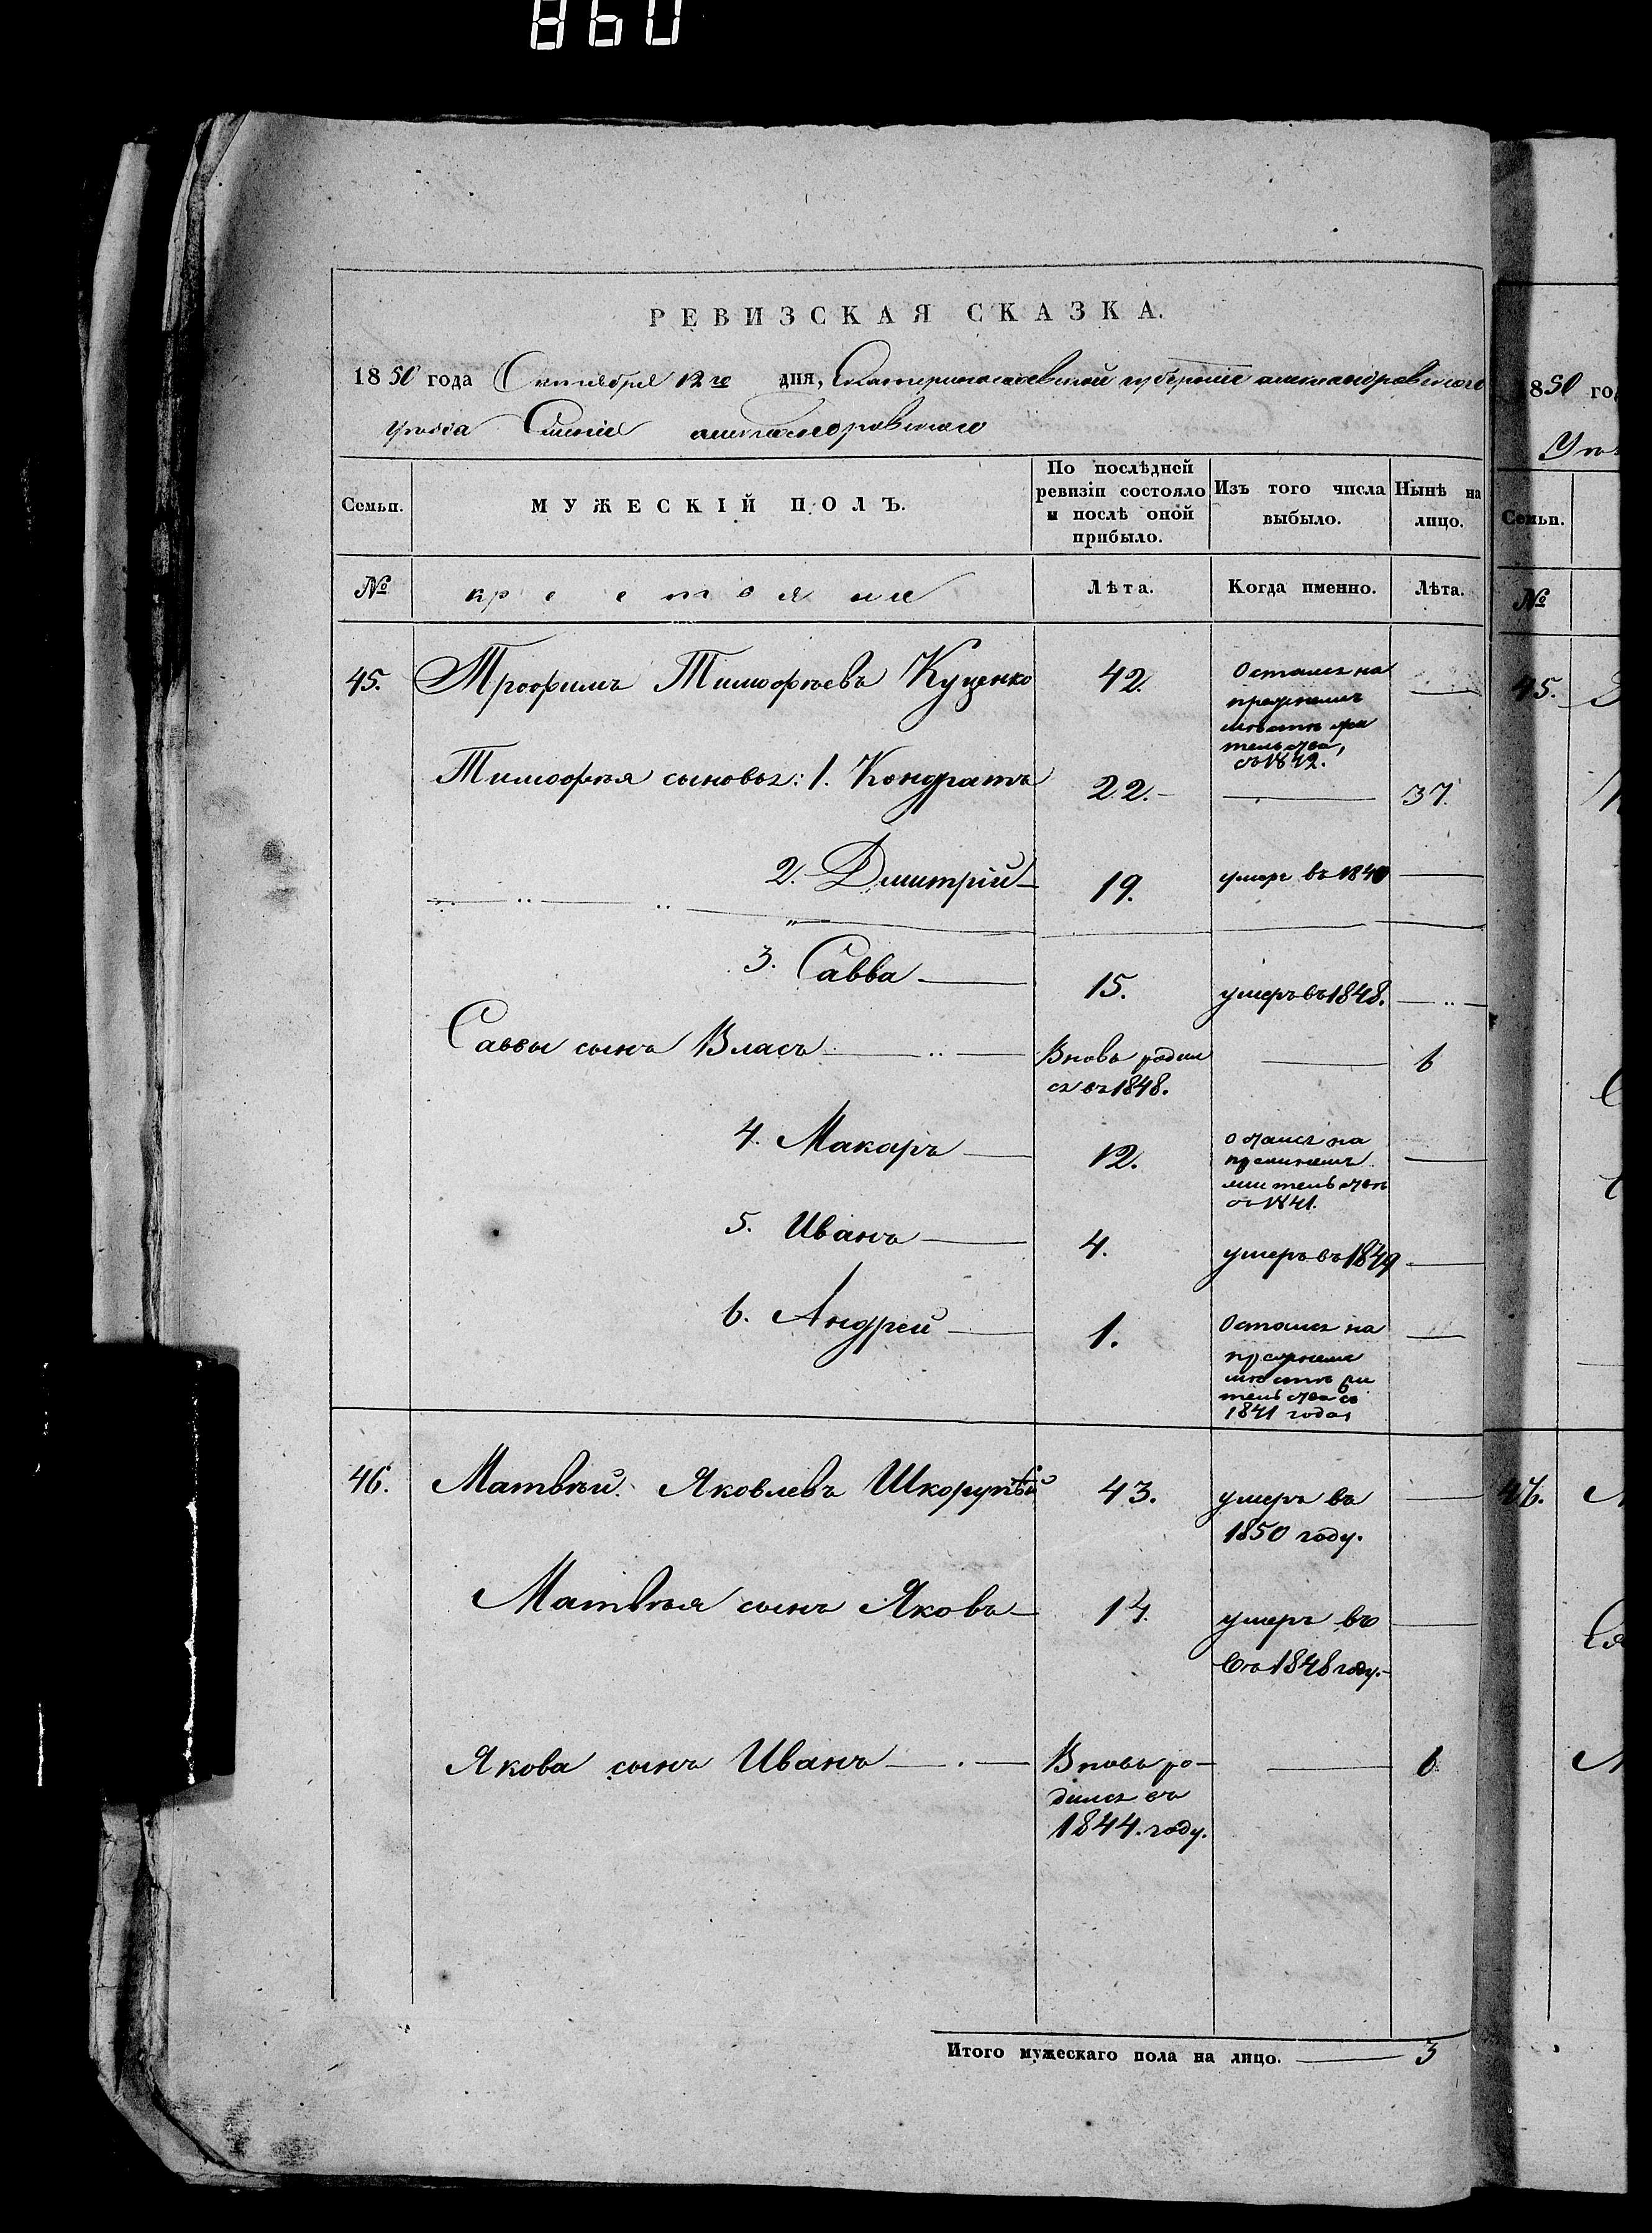 860
РЕВИЗСКАЯ СКАЗКА.
1850 года Октября 12го дня, Екатеринославской губернiи александровского
уезда
александровского
Семьи.
МУЖЕСКІЙ ПОЛЪ.
По послѣдней
ревизіи состояло
и послѣ оной
прибыло.
Изъ того числа
выбыло.
Нынѣ на
лицо.
№
крестояне
Лѣта.
Когда именно.
Лѣта.
45. Трофимъ Тимофѣевъ Куценко 42. Осталсь на —
прежнемъ
мѣстѣ жи
тельства,
съ 1842.
Тимофѣя сыновья: 1. Кондратъ 22. — — 37.
2. Дмитрій — 19. умеръ въ 1840 —
3. Савва — 15. умеръ въ 1848. —
Саввы сынъ Власъ — Вновь родил — 6
ся въ 1848.
4. Макаръ — 12. осталсь на —
съ 1841.
5. Иванъ — 4. умеръ въ 1849 —
6. Андрей — 1. Осталсь на —
прежнемъ
мѣстѣ жи
тельства съ
1841 года
46. Матвѣй. Яковлевъ Шкорупѣй 43. умеръ въ —
1850 году.
Матвѣя сынъ Яковъ — 14. умеръ въ —
въ 1848 году. —
Якова сынъ Иванъ — Вновь ро- — 6
дился въ
1844. году.
Итого мужескаго пола на лицо. — 3
1850 го
Семьи.
№
45.
46.